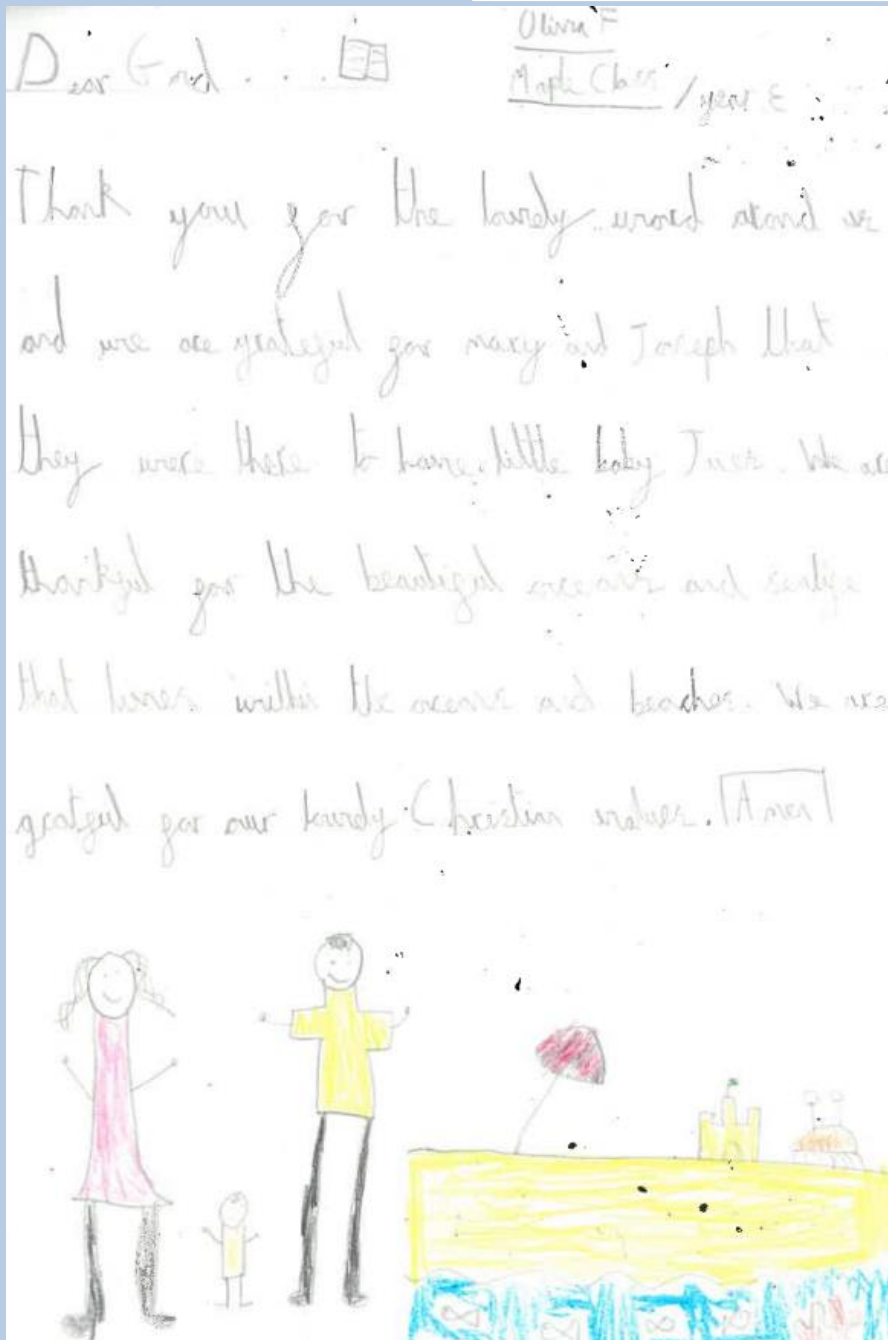 Dear God . . .
Olivia F
Maple Class / year 3
Thank you for the lovely world around us
and we are grateful for mary and Joseph that
they were there to have little baby Jues. We are
thankful for the beautiful oceans and sealife
that lives within the oceans and beaches. We are
gratful for our lovely Christian values. Amen